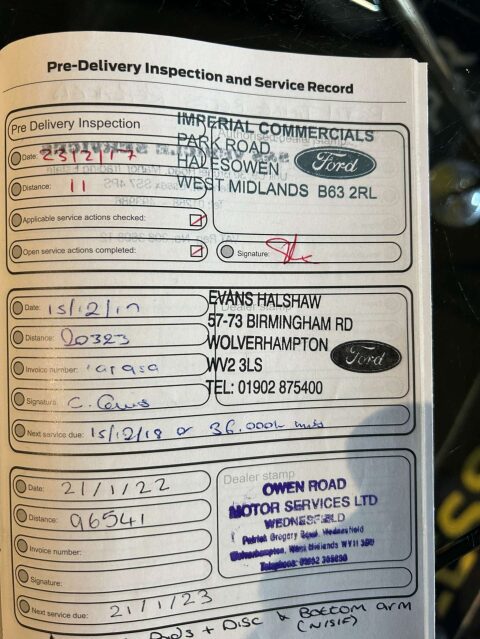 Pre-Delivery Inspection and Service Record
Pre Delivery Inspection
Date: 23/2/17
Distance: 11
Applicable service actions checked:
Open service actions completed:
IMRERIAL COMMERCIALS
PARK ROAD
HALESOWEN
WEST MIDLANDS B63 2RL
Ford
Signature:
Date: 15/12/17
Distance: 20323
Invoice number:
Signature:
Next service due: 15/12/18 or 36.000k
EVANS HALSHAW
57-73 BIRMINGHAM RD
WOLVERHAMPTON
WV2 3LS
TEL: 01902 875400
Ford
Date: 21/1/22
Distance: 96541
Invoice number:
Signature:
Next service due: 21/1/23
Dealer stamp
OWEN ROAD
MOTOR SERVICES LTD
WEDNESFIELD
Wolverhampton, West Midlands
Telephone:
+ DISC & BOTTOM arm
(N/S/F)